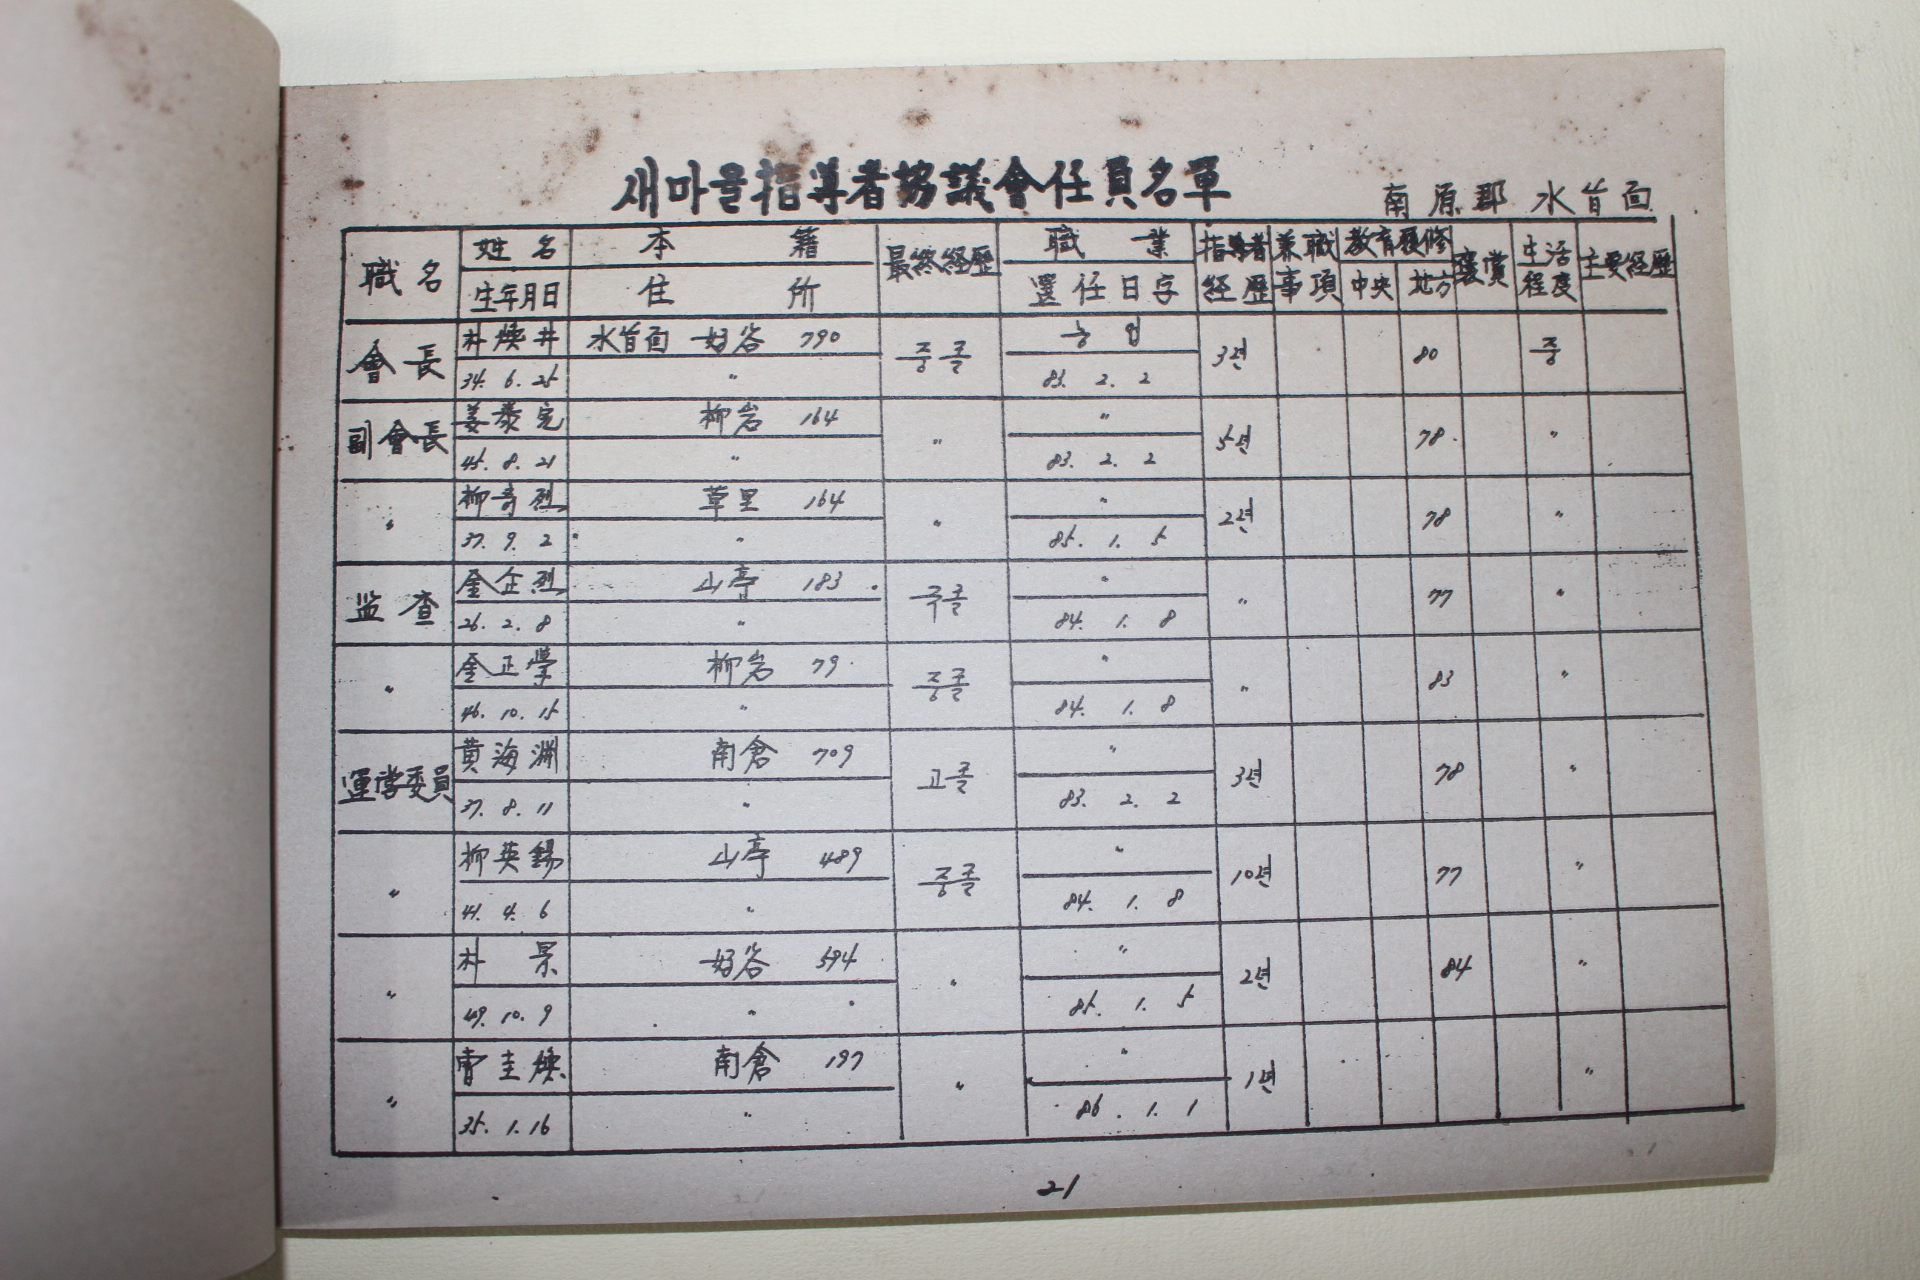 새마을指導者協議會任員名單
南原郡 水旨面
職名 姓名 本籍 最終経歷 職業 指導者 兼職 教育履修 褒賞 生活 主要経歷
生年月日 住所 置任日字 経歷 事項 中央 地方 程度
會長 朴煥井 水旨面 好谷 790 중졸 농업 3년 80 중
34. 6. 25 〃 83. 2. 2
副會長 姜泰完 柳岩 164 〃 〃 5년 78 〃
45. 8. 21 〃 83. 2. 2
〃 柳寄烈 草里 164 〃 〃 2년 78 〃
37. 9. 2 〃 85. 1. 5
监查 金企烈 山亭 183 국졸 〃 〃 77 〃
26. 2. 8 〃 84. 1. 8
〃 金正學 柳岩 79 중졸 〃 〃 83 〃
46. 10. 15 〃 84. 1. 8
運営委員 黄海渊 南倉 709 고졸 〃 3년 78 〃
37. 8. 11 〃 83. 2. 2
〃 柳英錫 山亭 489 중졸 〃 10년 77 〃
41. 4. 6 〃 84. 1. 8
〃 朴 杲 好谷 594 〃 〃 2년 84 〃
49. 10. 9 〃 85. 1. 5
〃 曺圭煥 南倉 197 〃 〃 1년 〃
35. 1. 16 〃 86. 1. 1
21